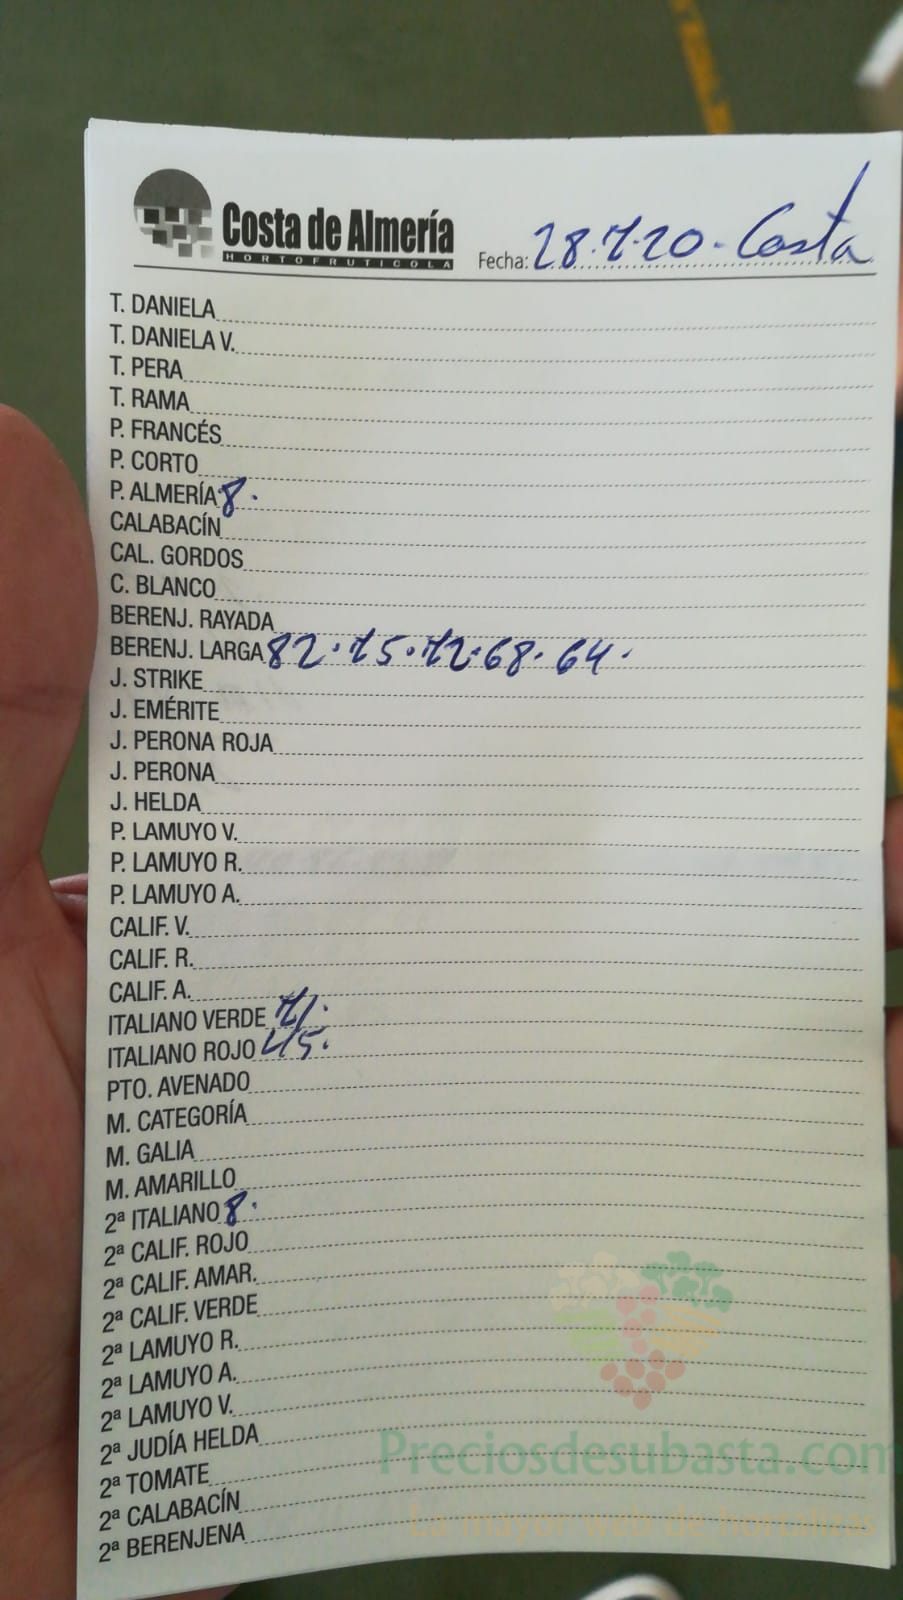 Costa de Almería
HORTOFRUTICOLA
Fecha: 28.7.20. Costa
T. DANIELA
T. DANIELA V.
T. PERA
T. RAMA
P. FRANCÉS
P. CORTO
P. ALMERÍA 8.
CALABACÍN
CAL. GORDOS
C. BLANCO
BERENJ. RAYADA
BERENJ. LARGA 82.75.72.68.64.
J. STRIKE
J. EMÉRITE
J. PERONA ROJA
J. PERONA
J. HELDA
P. LAMUYO V.
P. LAMUYO R.
P. LAMUYO A.
CALIF. V.
CALIF. R.
CALIF. A.
ITALIANO VERDE 71.
ITALIANO ROJO 45.
PTO. AVENADO
M. CATEGORÍA
M. GALIA
M. AMARILLO
2ª ITALIANO 8.
2ª CALIF. ROJO
2ª CALIF. AMAR.
2ª CALIF. VERDE
2ª LAMUYO R.
2ª LAMUYO A.
2ª LAMUYO V.
2ª JUDÍA HELDA
2ª TOMATE
2ª CALABACÍN
2ª BERENJENA
Preciosdesubasta.com
La mayor web de hortalizas